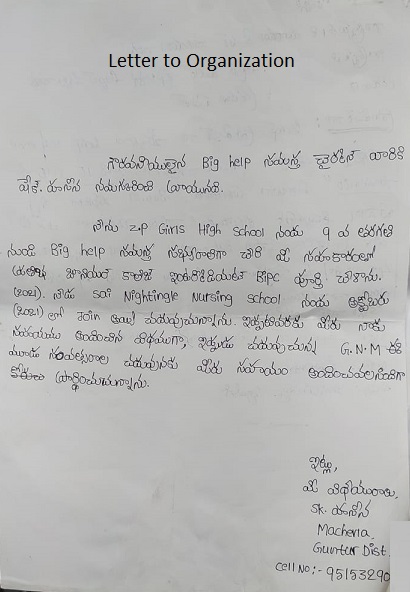 Letter to Organization
గౌరవనీయులైన Big help సమస్త చైర్మన్ వారికి
షేక్. హసీన నమస్కరించి వ్రాయునది.
నేను Z.P Girls High school నందు 9 వ తరగతి
నుండి Big help సమస్త సభ్యురాలిగా చేరి మీ సహకారంతో
జూనియర్ కాలేజి ఇంటర్మీడియట్ BiPC పూర్తి చేశాను.
(2021). నేడు sai Nightingle Nursing school నందు అక్టోబరు
(2021) లో Join అయ్యి చదువుచున్నాను. ఇప్పటివరకు మీరు నాకు
సహాయము అందించిన విధముగా, ఇప్పుడు చదువుచున్న G.N.M ఈ
మూడు సంవత్సరాల చదువునకు మీరు సహాయం అందించవలసిందిగా
ప్రార్థించుచున్నాను.
ఇట్లు,
మీ విధేయురాలు,
SK. హసీన
Macherla.
Guntur Dist.
Cell No:- 95153290